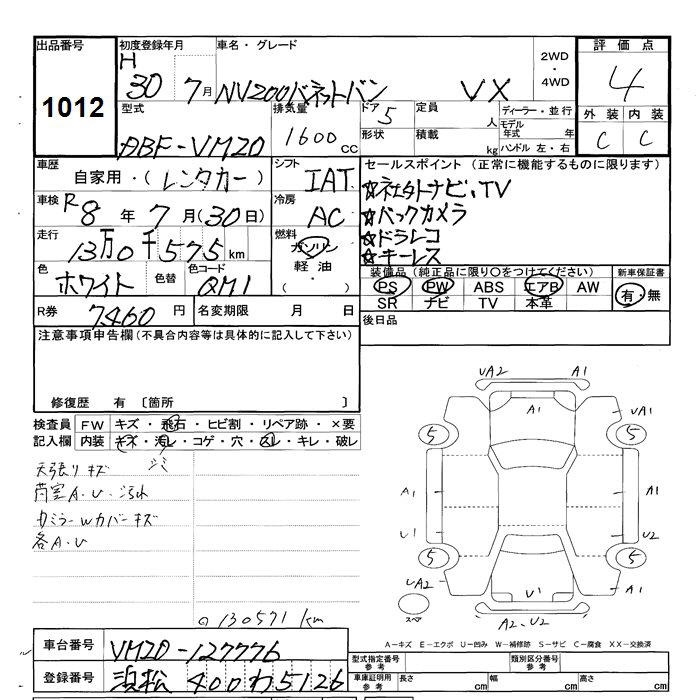 出品番号
1012
初度登録年月
H
30 7月
車名・グレード
NV200バネットバン VX
2WD
・
4WD
評価点
4
外装 内装
C C
型式
DBF-VM20
排気量
1600 cc
ドア 5
形状
定員 人
積載 kg
ディーラー・並行
モデル年式 年
ハンドル 左・右
車歴
自家用・(レンタカー)
シフト
IAT
車検
R8年7月(30日)
冷房
AC
走行
13万0千575km
燃料
ガソリン
軽油
( ・ )
色
ホワイト
色替
色コード
QM1
R券
7460円
名変期限 月 日
セールスポイント (正常に機能するものに限ります)
☆社外ナビ、TV
☆バックカメラ
☆ドラレコ
☆キーレス
装備品 (純正品に限り○をつけてください)
PS PW ABS エアB AW
SR ナビ TV 本革
新車保証書
有・無
後日品
注意事項申告欄 (不具合内容等は具体的に記入して下さい)
修復歴 有 〔箇所 〕
検査員記入欄
FW キズ・飛石・ヒビ割・リペア跡・×要
内装 キズ・汚レ・コゲ・穴・凹レ・キレ・破レ
天張りキズ
荷室A.U.汚れ
カミラーWカバーキズ
各A.U
130571 km
UA2 A1
A1
5 5
UA1
A1 A1
U1 U2
5 5
UA2 U1 UA2
スペア
A2.U2
A-キズ E-エクボ U-凹み W-補修跡 S-サビ C-腐食 XX-交換済
車台番号
VM20-127776
登録番号
浜松 400わ5126
型式指定番号 参考
類別区分番号 参考
車庫証明用 参考
長さ cm
幅 cm
高さ cm